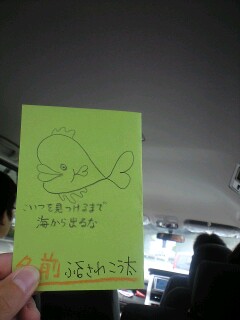 こいつを見つけるまで
海から出るな
名前 ふるさわ こう太